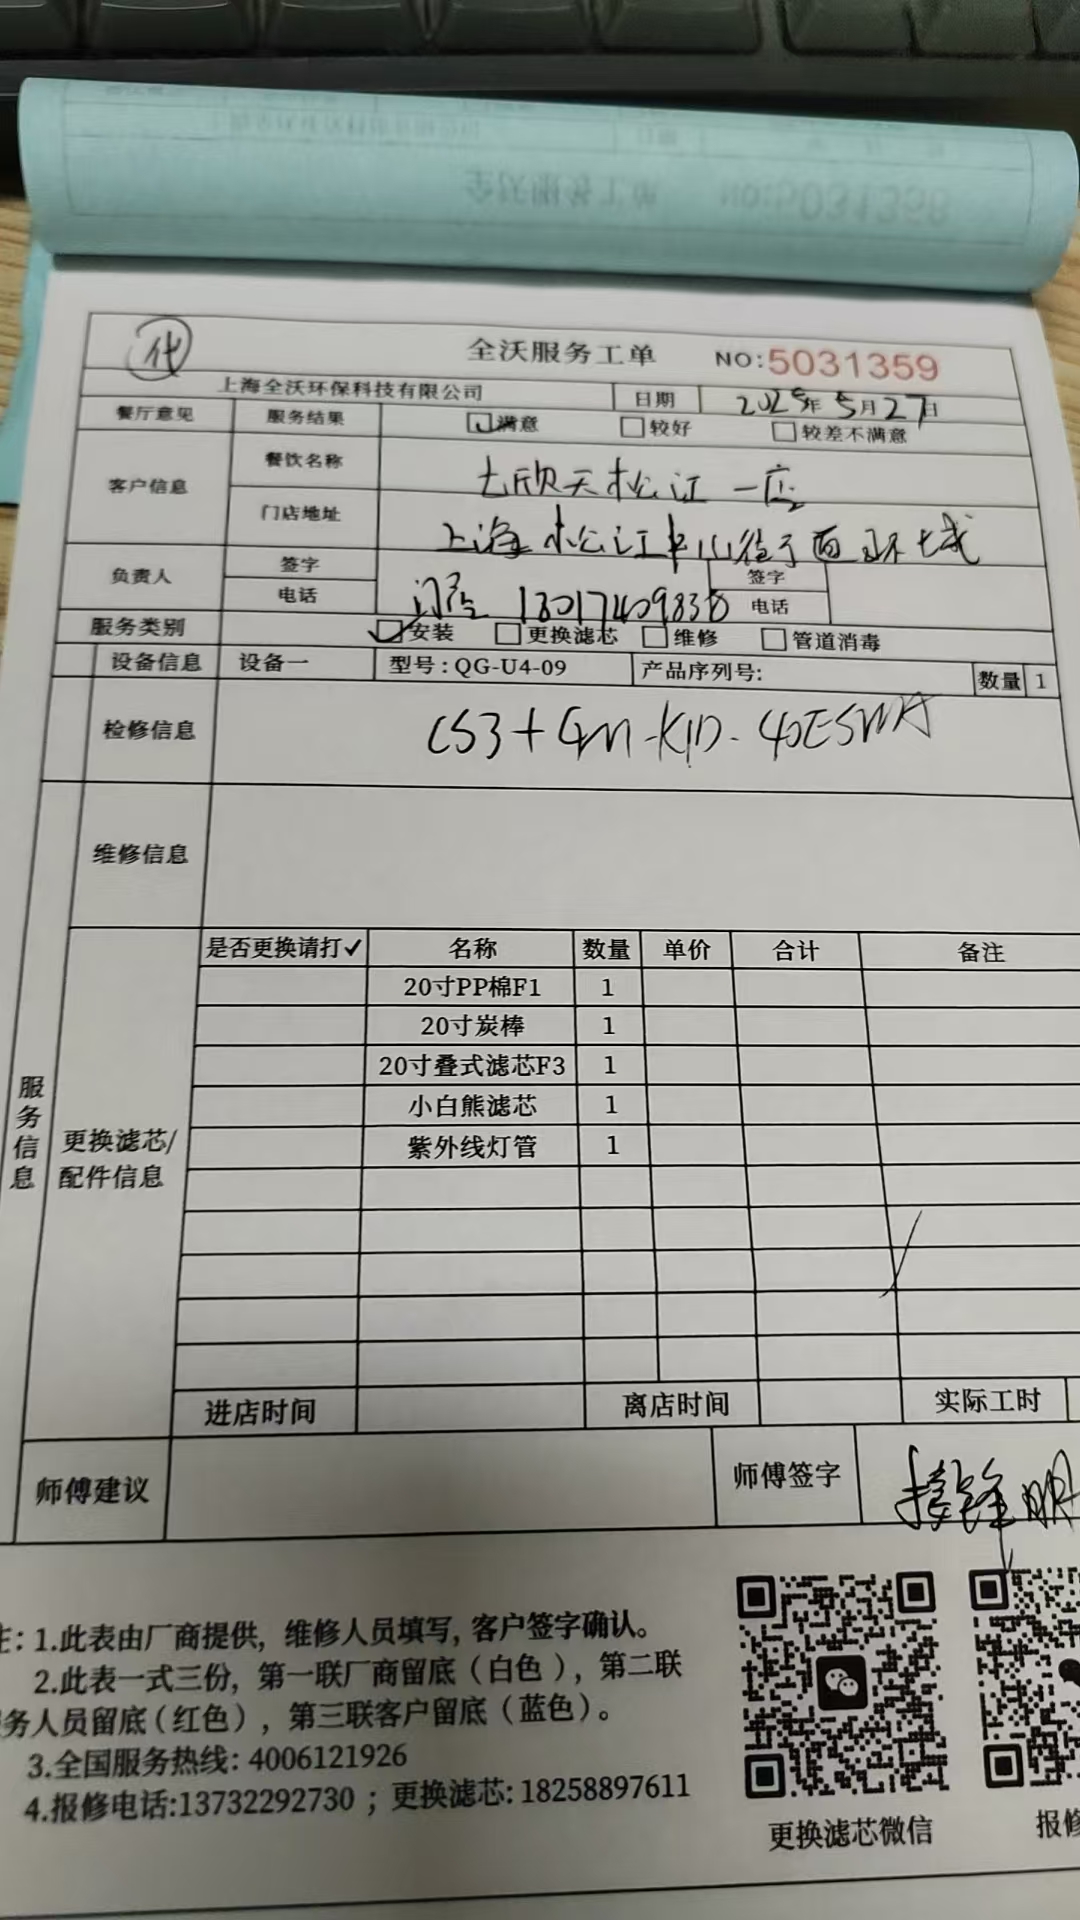 代
全沃服务工单 NO:5031359
上海全沃环保科技有限公司 日期 2025年5月27日
餐厅意见 服务结果 满意 较好 较差不满意
客户信息 餐饮名称 七欣天松江一店
门店地址 上海松江中山街道西环城
负责人 签字 签字
电话 18017409838 电话
服务类别 安装 更换滤芯 维修 管道消毒
设备信息 设备一 型号:QG-U4-09 产品序列号: 数量 1
检修信息 CS3+GM-KID-40ESWA
维修信息
服务信息
更换滤芯/配件信息
是否更换请打✓ 名称 数量 单价 合计 备注
20寸PP棉F1 1
20寸炭棒 1
20寸叠式滤芯F3 1
小白熊滤芯 1
紫外线灯管 1
进店时间 离店时间 实际工时
师傅建议 师傅签字
注:1.此表由厂商提供,维修人员填写,客户签字确认。
2.此表一式三份,第一联厂商留底(白色),第二联
务人员留底(红色),第三联客户留底(蓝色)。
3.全国服务热线:4006121926
4.报修电话:13732292730;更换滤芯:18258897611
更换滤芯微信 报修